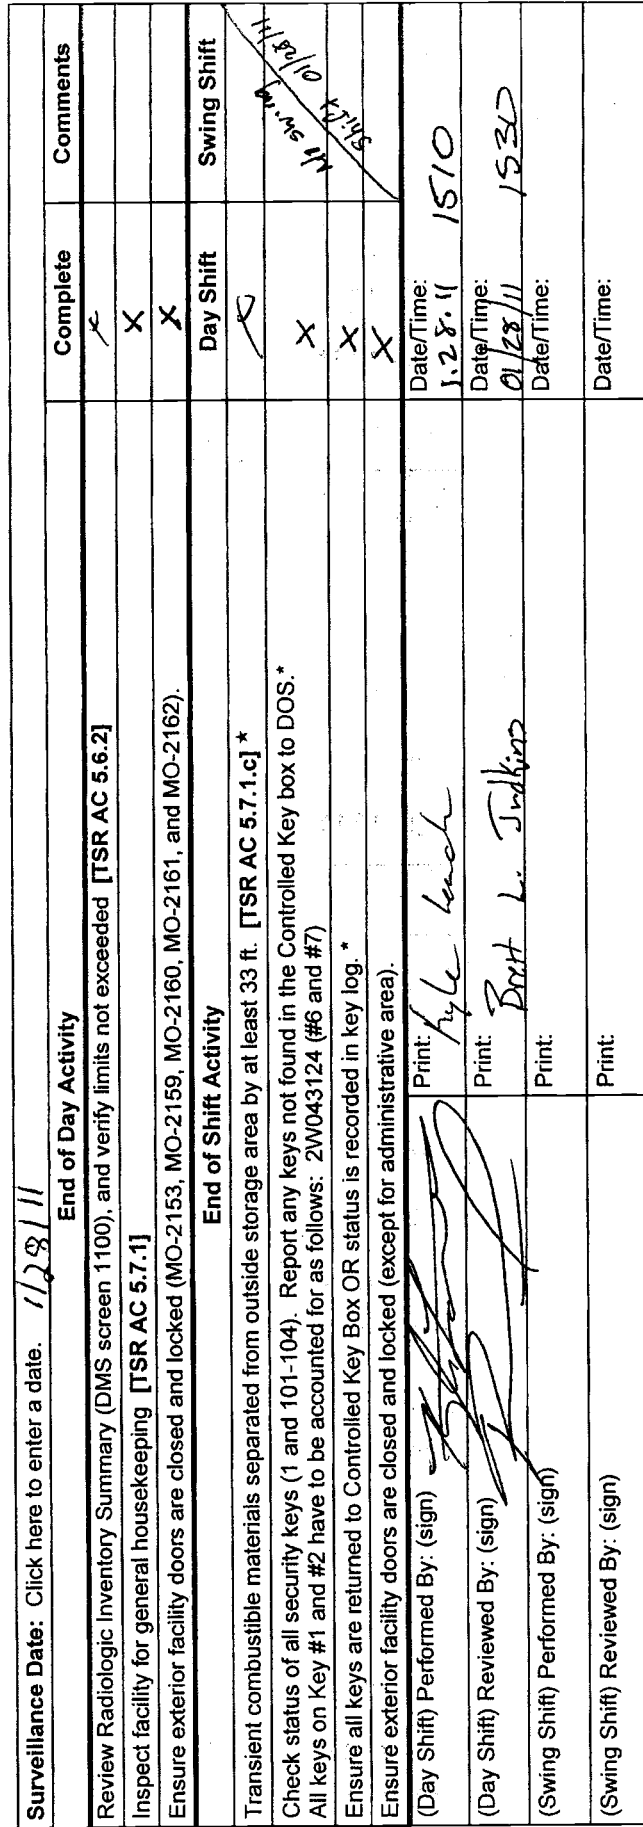 Surveillance Date: Click here to enter a date. 1/28/11
End of Day Activity Complete Comments
Review Radiologic Inventory Summary (DMS screen 1100), and verify limits not exceeded [TSR AC 5.6.2] x
Inspect facility for general housekeeping [TSR AC 5.7.1] X
Ensure exterior facility doors are closed and locked (MO-2153, MO-2159, MO-2160, MO-2161, and MO-2162). X
End of Shift Activity Day Shift Swing Shift
Transient combustible materials separated from outside storage area by at least 33 ft. [TSR AC 5.7.1.c] *
No swing
Shift 01/28/11
Check status of all security keys (1 and 101-104). Report any keys not found in the Controlled Key box to DOS.* X
All keys on Key #1 and #2 have to be accounted for as follows: 2W043124 (#6 and #7)
Ensure all keys are returned to Controlled Key Box OR status is recorded in key log. * X
Ensure exterior facility doors are closed and locked (except for administrative area). X
(Day Shift) Performed By: (sign) Print: Kyle Date/Time:
1.28.11 1510
(Day Shift) Reviewed By: (sign) Print: Brett L. Judkins Date/Time:
01/28/11 1530
(Swing Shift) Performed By: (sign) Print: Date/Time:
(Swing Shift) Reviewed By: (sign) Print: Date/Time: